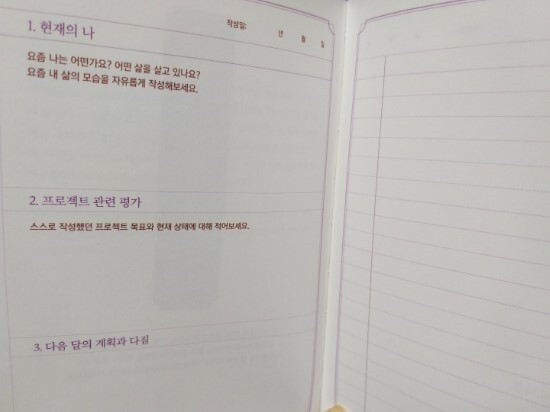 1. 현재의 나
작성일: 년 월 일
요즘 나는 어떤가요? 어떤 삶을 살고 있나요?
요즘 내 삶의 모습을 자유롭게 작성해보세요.
2. 프로젝트 관련 평가
스스로 작성했던 프로젝트 목표와 현재 상태에 대해 적어보세요.
3. 다음 달의 계획과 다짐